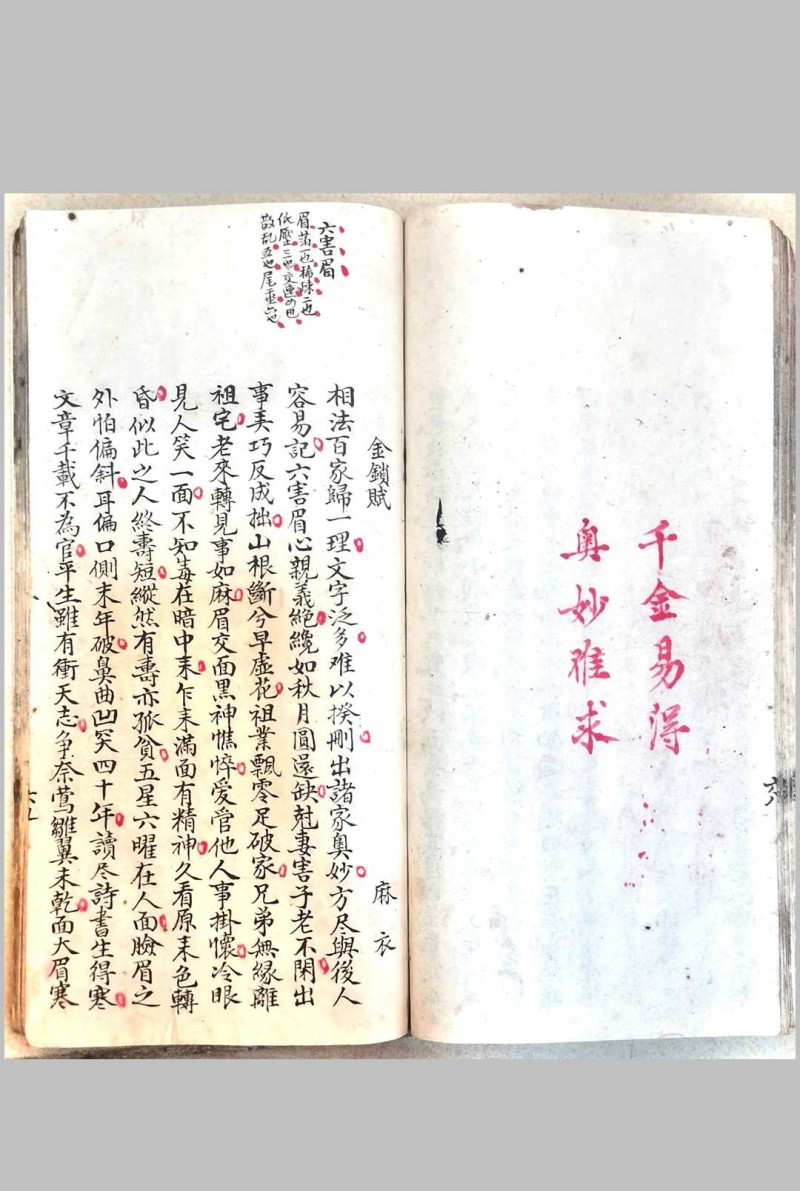 六八
千金易得
奥妙难求
六害眉
眉薄一也稀疎二也
低壓三也交連四也
散乱五也尾垂六也
金鎖賦 麻衣
相法百家歸一理文字泛多难以揆刪出諸家奥妙方尽與後人
容易記六害眉心親義絕纔如秋月圓還缺尅妻害子老不閑出
事弄巧反成拙山根斷兮早虛花祖業飄零足破家兄弟無縁離
祖宅老來轉見事如麻眉交面黑神憔悴爱管他人事掛懷冷眼
見人笑一面不知毒在暗中来乍来滿面有精神久看原来色轉
昏似此之人終壽短縱然有壽亦孤貧五星六曜在人面臉眉之
外怕偏斜耳偏口側末年破鼻曲凹突四十年讀尽詩書生得寒
文章千載不為官平生雖有衝天志争奈莺雛翼未乾面大眉寒